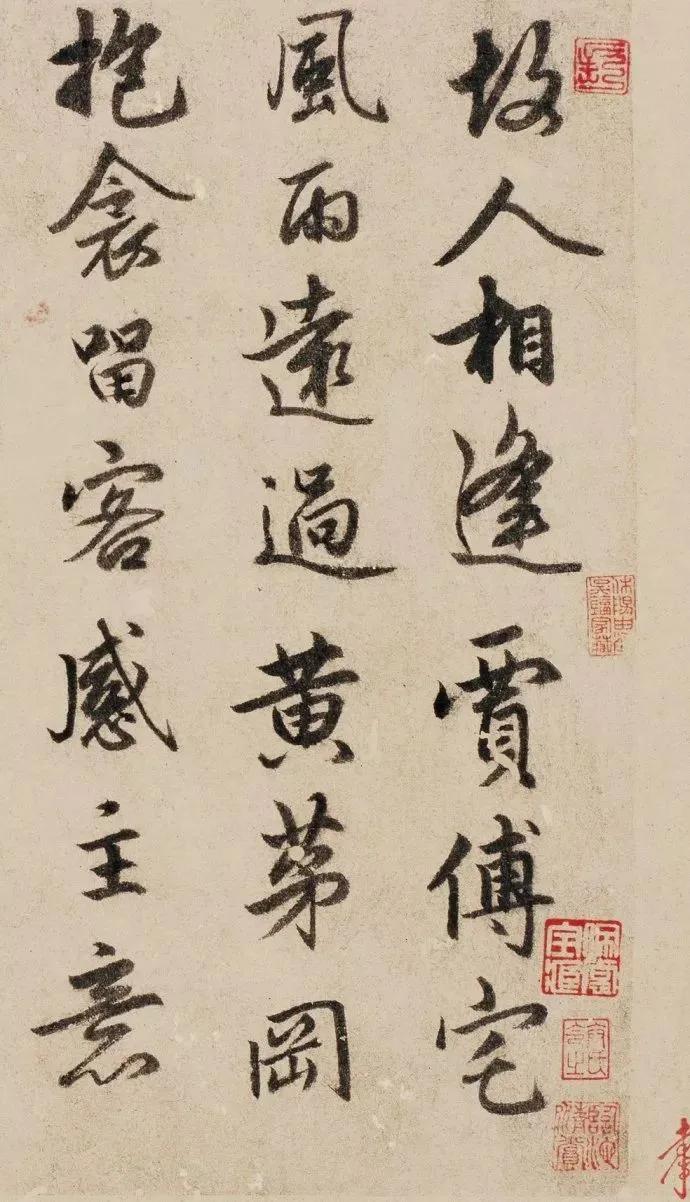 故人相逢賈傅宅
風雨遠過黃茅岡
抱衾留客感主意